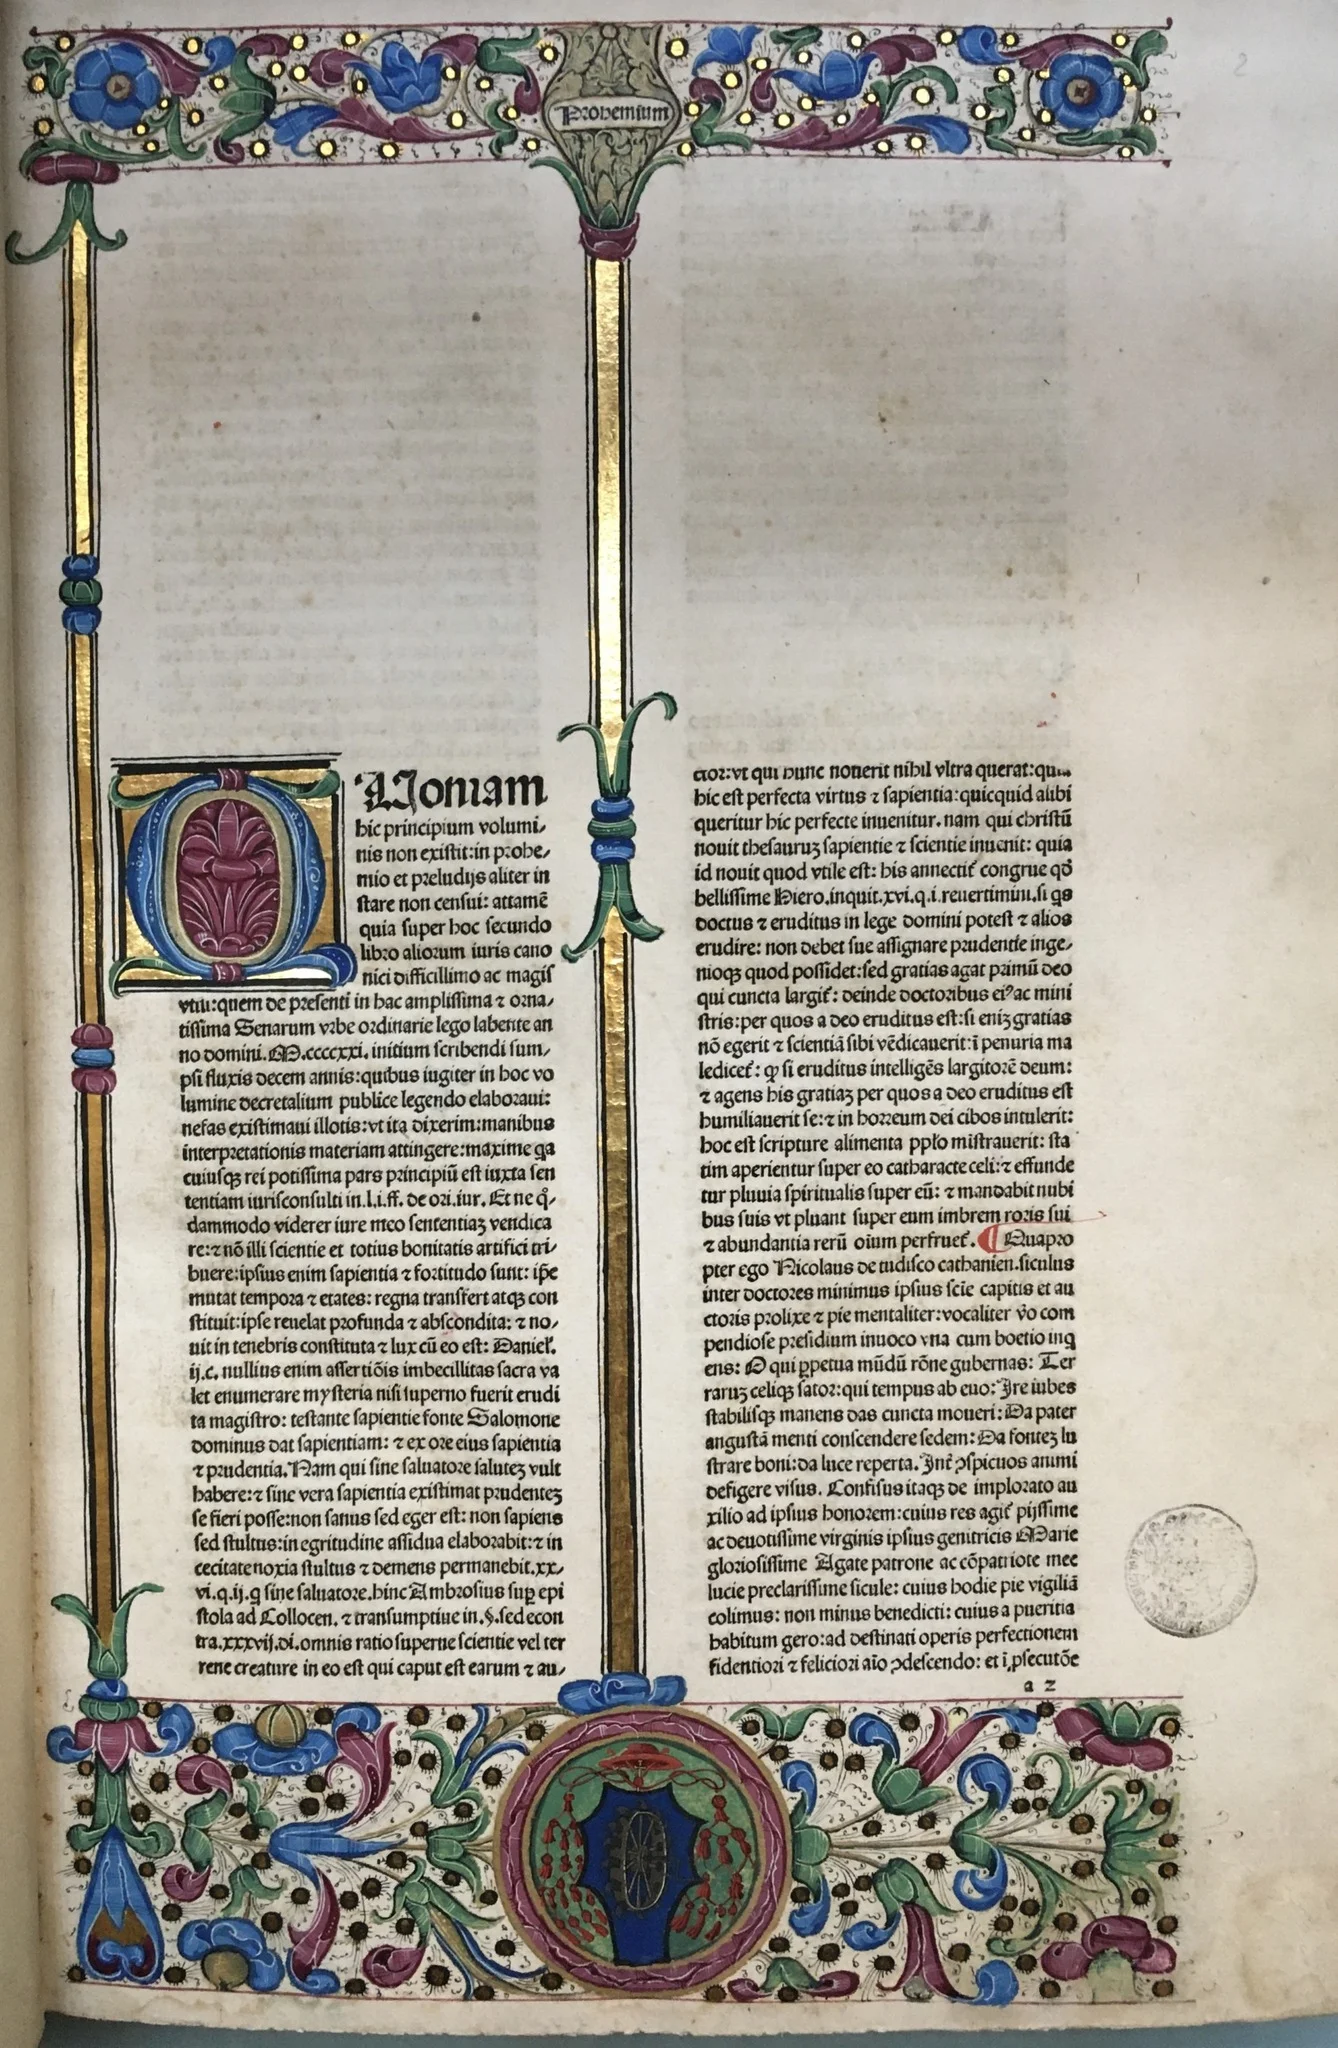 Prohemium
QUoniam
hic principium volumi⸗
nis non existit:in prohe⸗
mio et preludijs aliter in
stare non censui: attamẽ
quia super hoc secundo
libro aliorum iuris cano
nici difficillimo ac magis
vtili:quem de presenti in hac amplissima ⁊ orna⸗
tissima Senarum vrbe ordinarie lego labente an
no domini.M.ccccxxi. initium scribendi sum⸗
psi fluxis decem annis:quibus iugiter in hoc vo
lumine decretalium publice legendo elaboraui:
nefas existimaui illotis:vt ita dixerim:manibus
interpretationis materiam attingere:maxime q̃a
cuiusqꝫ rei potissima pars principiũ est iuxta sen
tentiam iurisconsulti in.l.i.ff. de ori.iur. Et ne q̃⸗
dammodo viderer iure meo sententiaꝫ vendica
re:⁊ nõ illi scientie et totius bonitatis artifici tri⸗
buere:ipsius enim sapientia ⁊ fortitudo sunt: ip̃e
mutat tempora ⁊ etates: regna transfert atqꝫ con
stituit:ipse reuelat profunda ⁊ abscondita: ⁊ no⸗
uit in tenebris constituta ⁊ lux cũ eo est: Daniel̉.
ij.c. nullius enim assertiõis imbecillitas sacra va
let enumerare mysteria nisi superno fuerit erudi
ta magistro: testante sapientie fonte Salomone
dominus dat sapientiam: ⁊ ex ore eius sapientia
⁊ prudentia. Nam qui sine saluatore salutez vult
habere:⁊ sine vera sapientia existimat prudentez
se fieri posse:non sanus sed eger est: non sapiens
sed stultus:in egritudine assidua elaborabit:⁊ in
cecitate noxia stultus ⁊ demens permanebit.xx⸗
vi.q.ij.q̃ sine saluatore.hinc Ambrosius sup̱ epi
stola ad Collocen. ⁊ transumptiue in.§.sed econ
tra.xxxvij.di.omnis ratio superne scientie vel ter
rene creature in eo est qui caput est earum ⁊ au⸗
ctor:vt qui hunc nouerit nihil vltra querat:quia
hic est perfecta virtus ⁊ sapientia:quicquid alibi
queritur hic perfecte inuenitur. nam qui christũ
nouit thesauruꝫ sapientie ⁊ scientie inuenit: quia
id nouit quod vtile est: his annectit̉ congrue qđ
bellissime Hiero.inquit.xvi.q.i.reuertimini.si q̃s
doctus ⁊ eruditus in lege domini potest ⁊ alios
erudire: non debet sue assignare prudentie inge⸗
nioqꝫ quod possidet:sed gratias agat primũ deo
qui cuncta largit̉: deinde doctoribus eiꝰ ac mini
stris:per quos a deo eruditus est:si eniꝫ gratias
nõ egerit ⁊ scientiã sibi vẽdicauerit:ĩ penuria ma
ledicet̉: ꝙ si eruditus intelligẽs largitorẽ deum:
⁊ agens his gratiaꝫ per quos a deo eruditus est
humiliauerit se:⁊ in horreum dei cibos intulerit:
hoc est scripture alimenta pp̃lo mĩstrauerit: sta
tim aperientur super eo catharacte celi:⁊ effunde
tur pluuia spiritualis super eũ: ⁊ mandabit nubi
bus suis vt pluant super eum imbrem roris sui
⁊ abundantia rerũ oĩum perfruet̉. ¶ Quapro
pter ego Nicolaus de tudisco cathanien.siculus
inter doctores minimus ipsius scĩe capitis et au
ctoris prolixe ⁊ pie mentaliter:vocaliter ṽo com
pendiose presidium inuoco vna cum boetio inq̃
ens: O qui ꝑpetua mũdũ rõne gubernas: Ter
raruꝫ celiqꝫ sator:qui tempus ab euo:Ire iubes
stabilisqꝫ manens das cuncta moueri:Da pater
angustã menti conscendere sedem:Da fontez lu
strare boni:da luce reperta.Int̉ ꝯspicuos animi
defigere visus. Confisus itaqꝫ de implorato au
xilio ad ipsius honorem:cuius res agit̉ pijssime
ac deuotissime virginis ipsius genitricis Marie
gloriosissime Agate patrone ac cõpatriote mee
lucie preclarissime sicule: cuius hodie pie vigiliã
colimus: non minus benedicti: cuius a pueritia
habitum gero:ad destinati operis perfectionem
fidentiori ⁊ feliciori aĩo ꝯdescendo: et ĩ ꝓsecutõe
a 2
2